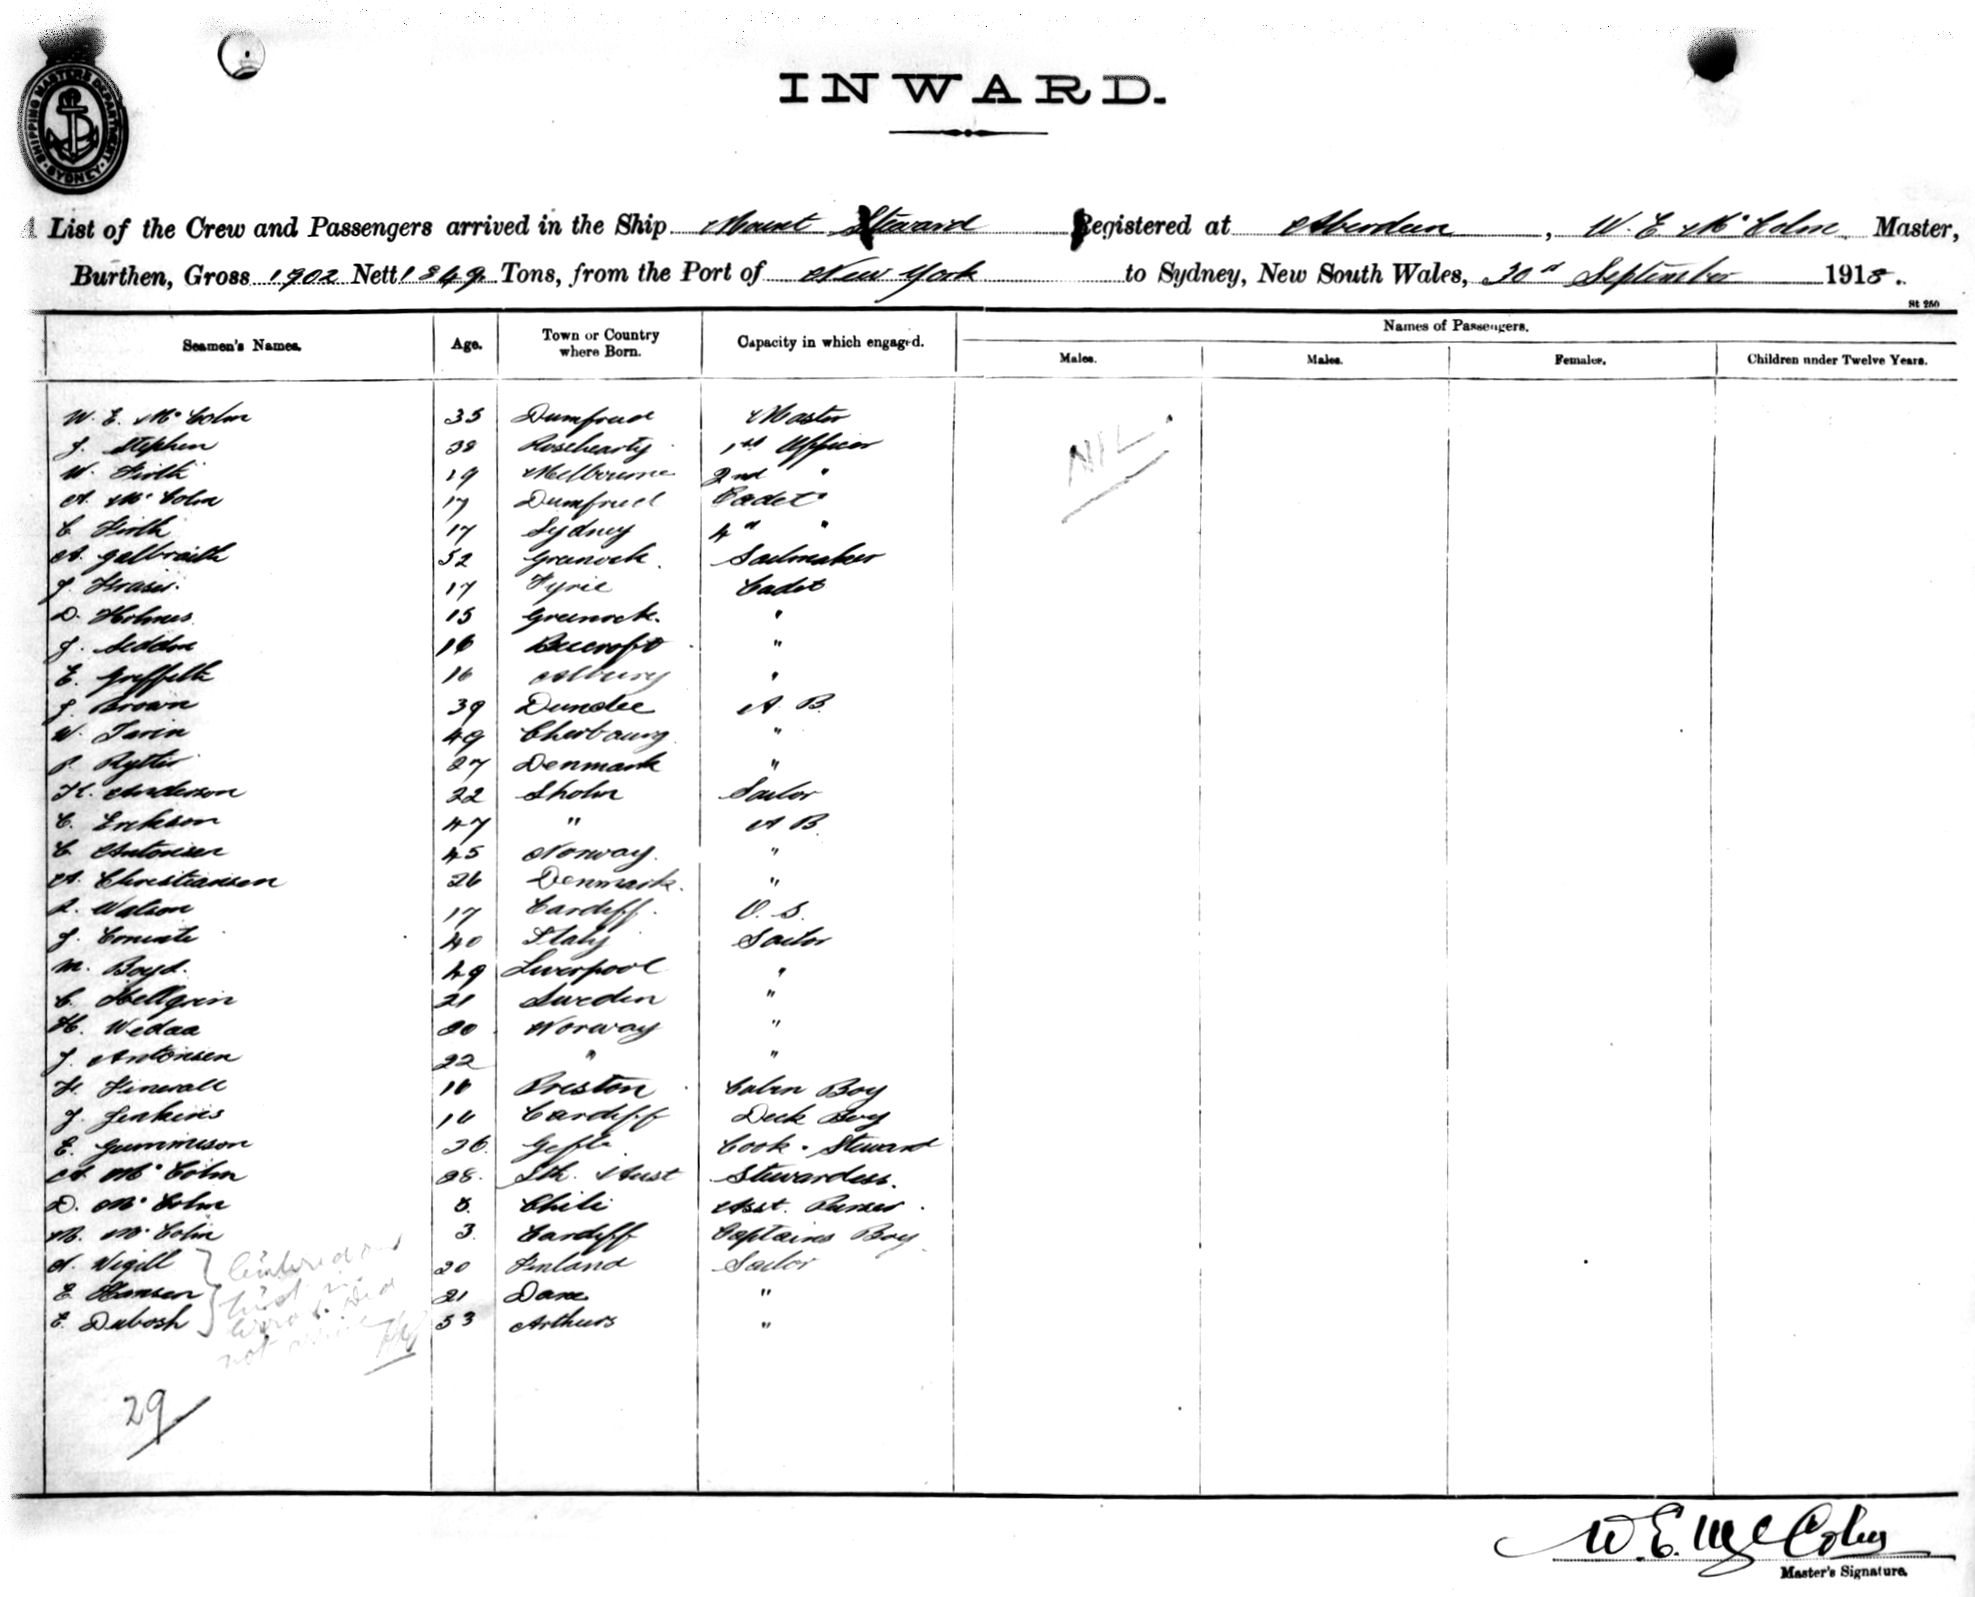 SHIPPING MASTERS DEPARTMENT SYDNEY
INWARD.
A List of the Crew and Passengers arrived in the Ship Mount Steward Registered at Aberdeen, W. E. McColm, Master,
Burthen, Gross 1902 Nett 1849 Tons, from the Port of New York to Sydney, New South Wales, 30th September 1918.
St 250
Seamen's Names. Age. Town or Country where Born. Capacity in which engaged. Names of Passengers.
Males. Males. Females. Children under Twelve Years.
W. E. McColm 35 Dumfried Master
J. Stephen 38 Rosehearty 1st Officer
W. Firth 19 Melbourne 2nd "
A. McColm 17 Dumfried Cadet
C Firth 17 Sydney 4th "
A. Galbraith 52 Greenock Sailmaker
J. Fraser 17 Tyrie Cadet
D. Holmes 15 Greenock "
J. Seddon 16 Beecroft "
E. Griffith 16 Albury "
J. Brown 39 Dundee A B
W. Tarin 49 Cherbourg "
P. Rytter 27 Denmark "
H. Anderson 22 Sholm Sailor
C. Erikson 47 " A B
C Antonsen 45 Norway "
A. Christiansen 26 Denmark "
R. Watson 17 Cardiff O. S.
J. 40 Italy Sailor
M. Boyd. 49 Liverpool "
C. Hellgrin 21 Sweden "
H. Wedaa 20 Norway "
J. Antonsen 22 " "
H. 16 Preston Cabin Boy
J. Jenkins 16 Cardiff Deck Boy
E. Gunnison 26 Gefle Cook - Steward
A. McColm 28 Sth. Aust Stewardess.
D. McColm 8 Chili Asst. Purser
M. McColm 3 Cardiff Captains Boy
A. Nigill 20 Finland Sailor
E Hansen 21 Dane "
E. Dubosh 53 Arthurs "
NIL.
Entered on
list in
error. Did
not arrive
29
W. E. McColm
Master's Signature.